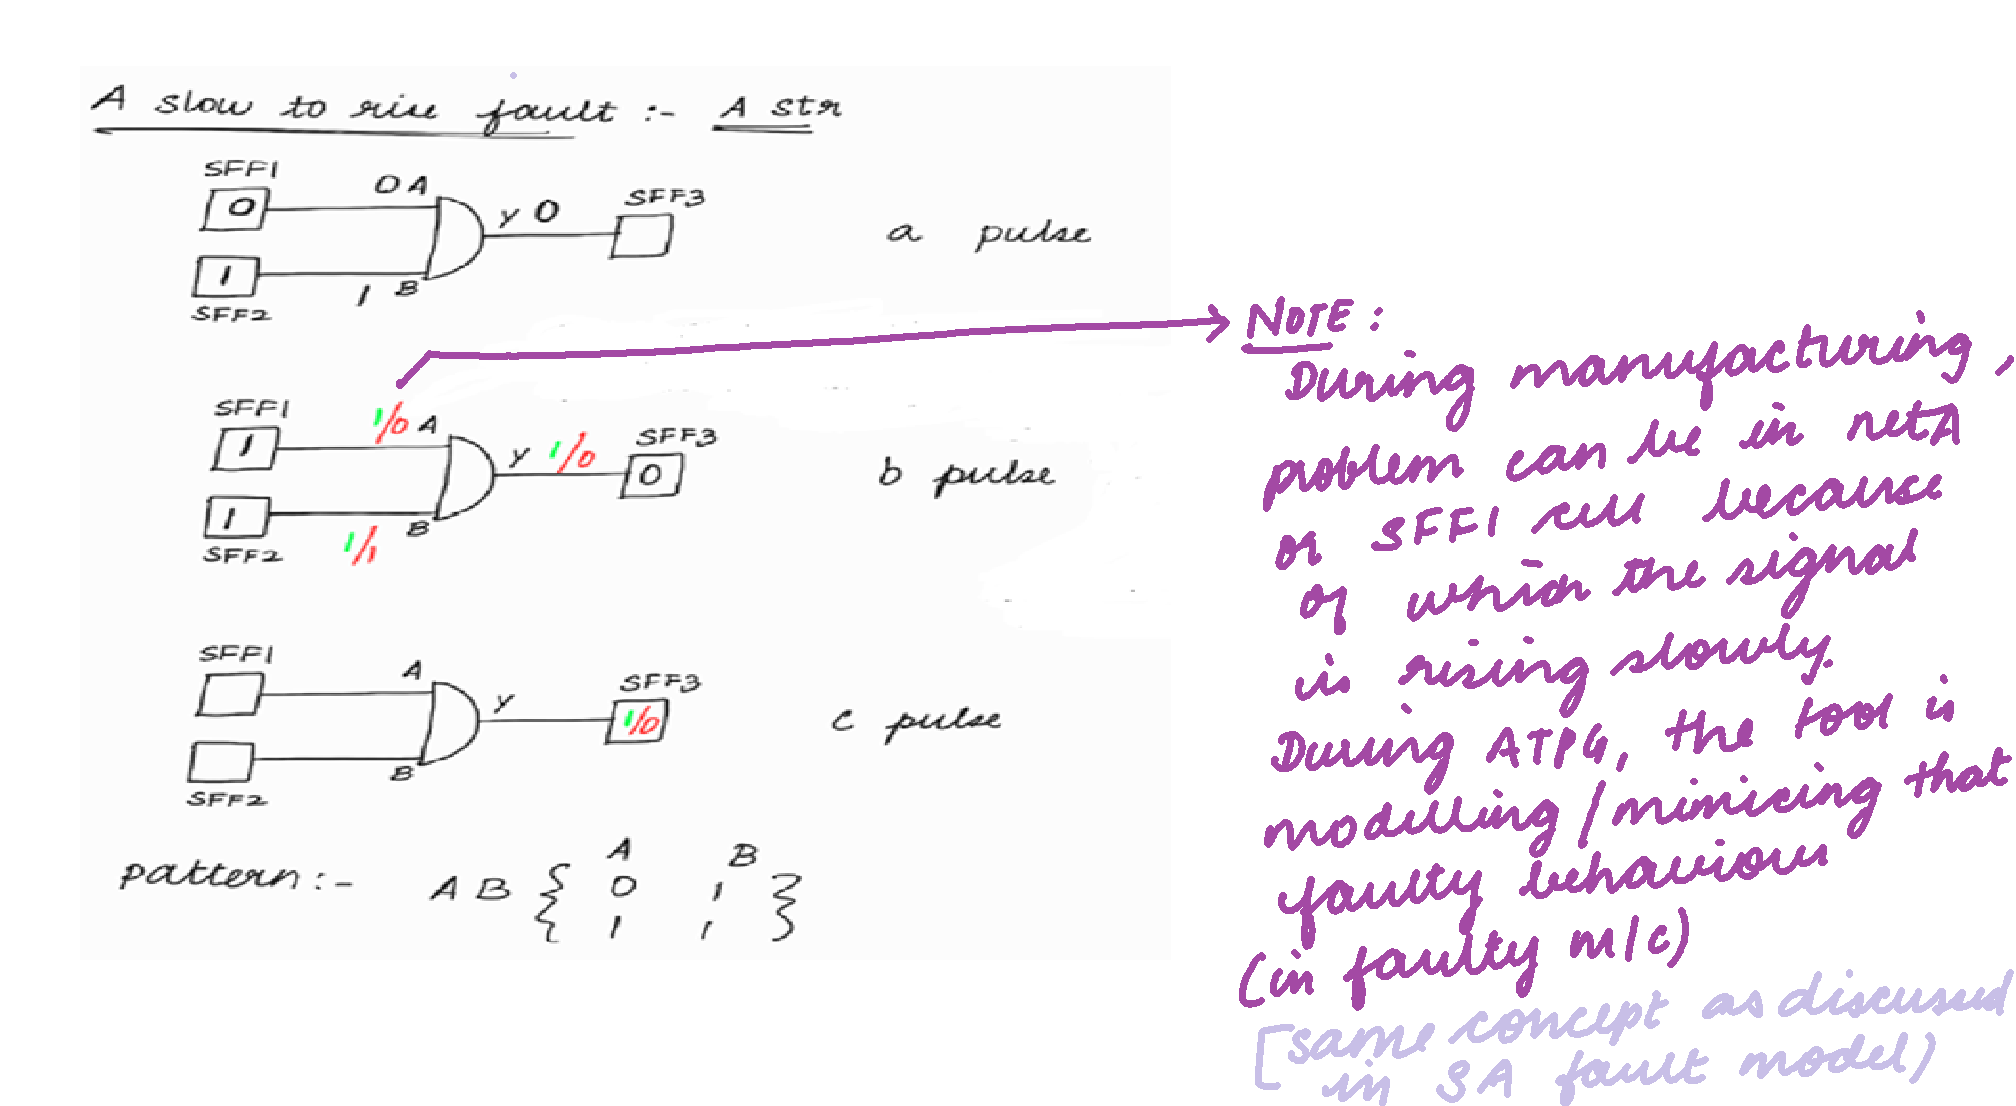 A slow to rise fault :- A str
SFF1
0
0 A
y 0
SFF3
a pulse
1
1 B
SFF2
SFF1
1
1/0 A
y 1/0
SFF3
0
b pulse
1
1/1
B
SFF2
SFF1
A
y
SFF3
1/0
c pulse
B
SFF2
pattern :- A B { A B
0 1
1 1 }
NOTE :
During manufacturing,
problem can be in netA
or SFF1 cell because
of which the signal
is rising slowly.
During ATPG, the tool is
modelling / mimicing that
faulty behaviour
(in faulty m/c)
[same concept as discussed
in SA fault model)